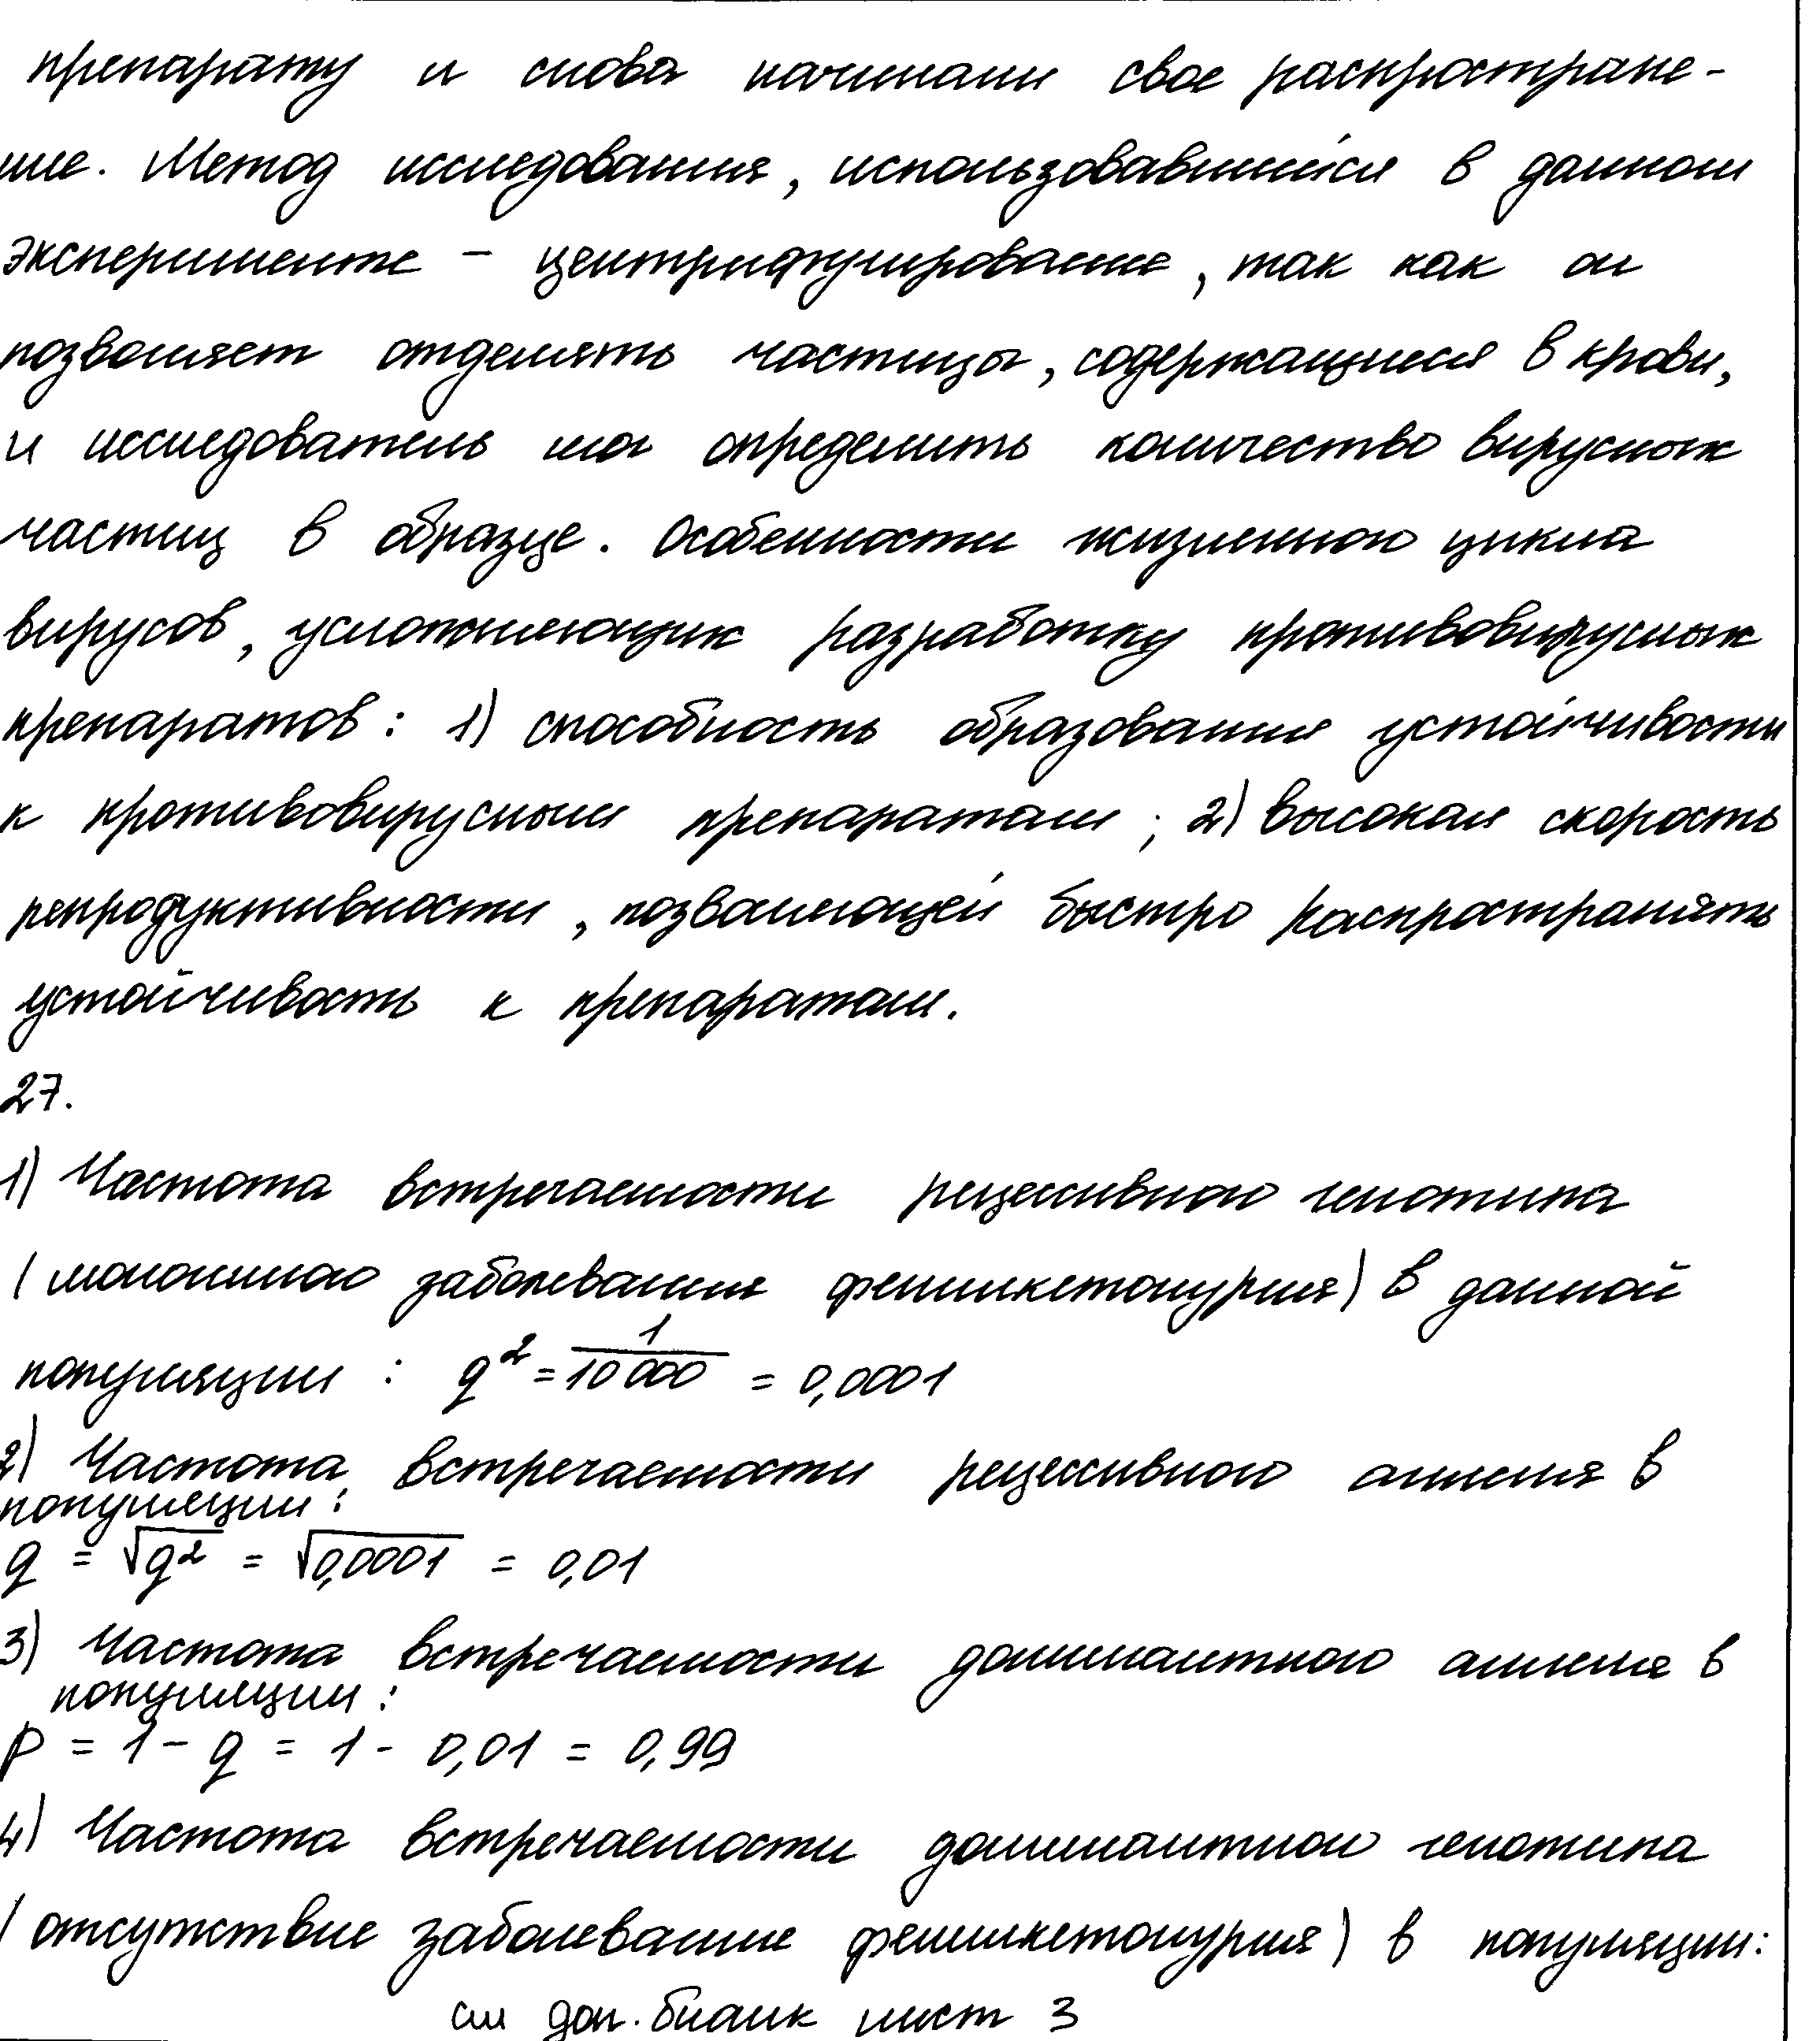 препарату и снова начинали свое распростране-
ние. Метод исследования, использовавшийся в данном
эксперименте - центрифугирование, так как он
позволяет отделять частицы, содержащиеся в крови,
и исследователь мог определить количество вирусных
частиц в образце. Особенности жизненного цикла
вирусов, усложняющих разработку противовирусных
препаратов: 1) способность образования устойчивости
к противовирусным препаратам; 2) высокая скорость
репродуктивности, позволяющей быстро распространять
устойчивость к препаратам.
27.
1) Частота встречаемости рецессивного генотипа
(моногенного заболевания фенилкетонурия) в данной
популяции: q² = 1/10 000 = 0,0001
2) Частота встречаемости рецессивного аллеля в
популяции:
q = √q² = √0,0001 = 0,01
3) Частота встречаемости доминантного аллеля в
популяции:
p = 1 - q = 1 - 0,01 = 0,99
4) Частота встречаемости доминантного генотипа
(отсутствие заболевание фенилкетонурия) в популяции:
см доп. бланк лист 3